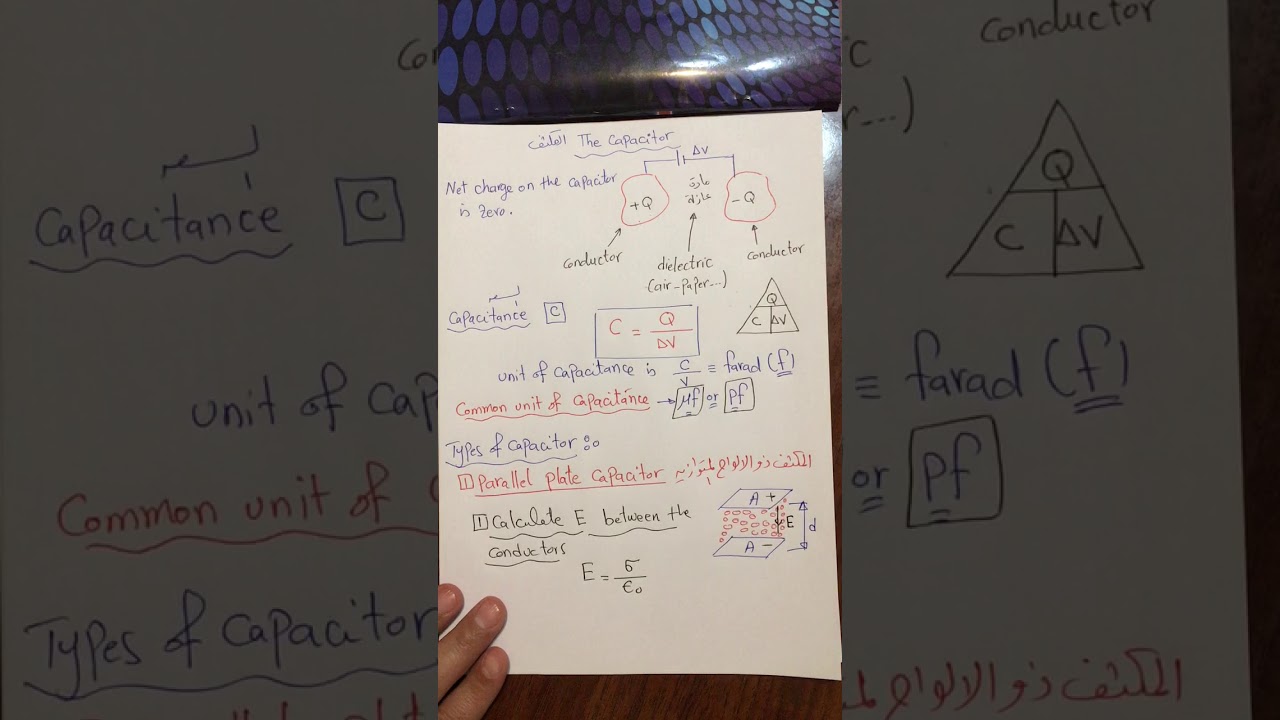 المكثف The Capacitor
ΔV
Net charge on the capacitor
is zero.
+Q
مادة
عازلة
-Q
conductor
dielectric
(air-paper...)
conductor
Capacitance C
C = Q/ΔV
Q
C ΔV
unit of capacitance is C/V ≡ farad (f)
Common unit of capacitance → μf or pf
Types of capacitor:
1 Parallel plate capacitor المكثف ذو الالواح المتوازيه
1 Calculate E between the
conductors
A +
E
d
A -
E = σ/ϵ0